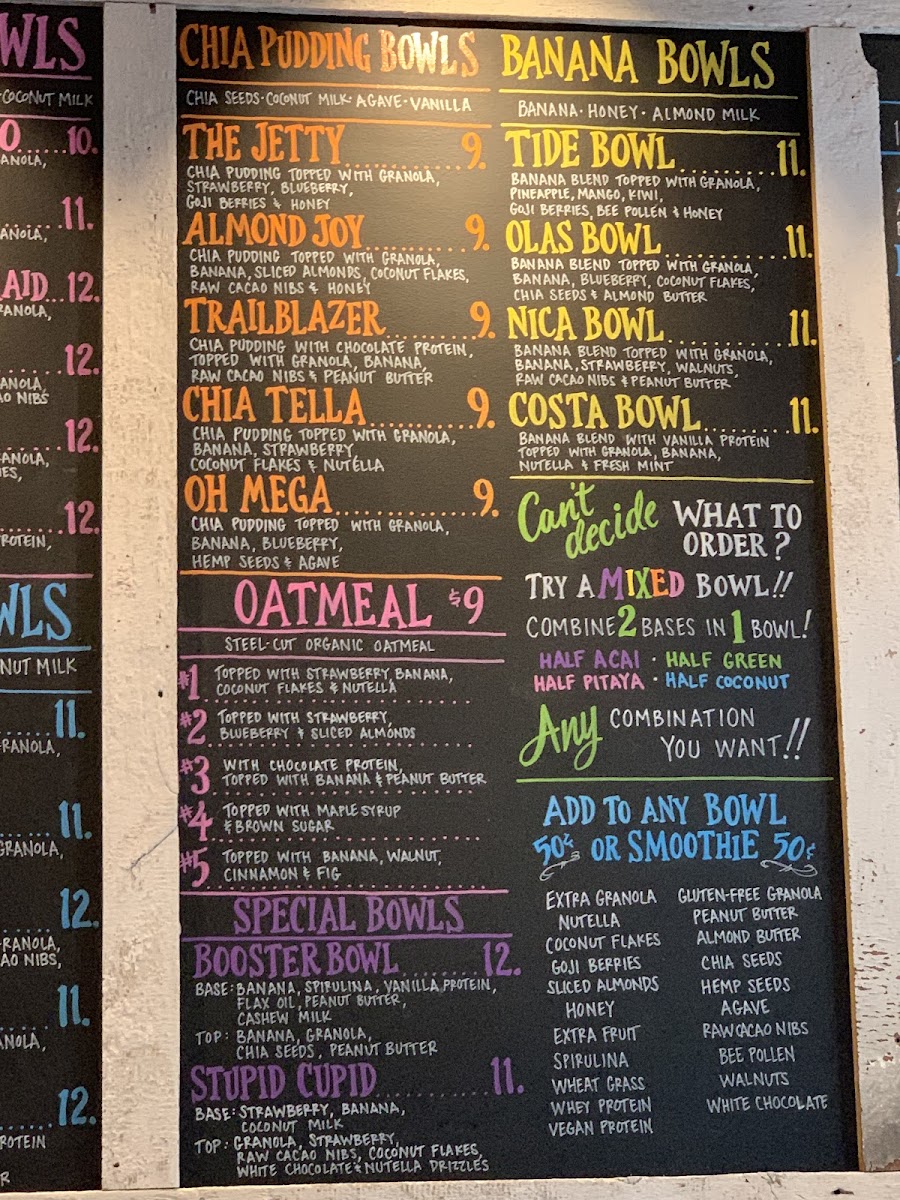 WLS
COCONUT MILK
O......10.
ANOLA,
11.
ANOLA,
AID...12.
RANOLA,
12.
ANOLA,
AO NIBS
12.
ANOLA,
IES,
12.
ROTEIN,
WLS
NUT MILK
11.
RANOLA,
11.
GRANOLA,
12.
RANOLA,
AO NIBS,
11.
ANOLA,
12.
ROTEIN
R
CHIA PUDDING BOWLS
CHIA SEEDS·COCONUT MILK·AGAVE·VANILLA
THE JETTY 9.
CHIA PUDDING TOPPED WITH GRANOLA,
STRAWBERRY, BLUEBERRY,
GOJI BERRIES & HONEY
ALMOND JOY 9.
CHIA PUDDING TOPPED WITH GRANOLA,
BANANA, SLICED ALMONDS, COCONUT FLAKES,
RAW CACAO NIBS & HONEY
TRAILBLAZER 9.
CHIA PUDDING WITH CHOCOLATE PROTEIN,
TOPPED WITH GRANOLA, BANANA,
RAW CACAO NIBS & PEANUT BUTTER
CHIA TELLA 9.
CHIA PUDDING TOPPED WITH GRANOLA,
BANANA, STRAWBERRY,
COCONUT FLAKES & NUTELLA
OH MEGA 9.
CHIA PUDDING TOPPED WITH GRANOLA,
BANANA, BLUEBERRY,
HEMP SEEDS & AGAVE
OATMEAL $9
STEEL-CUT ORGANIC OATMEAL
#1 TOPPED WITH STRAWBERRY BANANA,
COCONUT FLAKES & NUTELLA
#2 TOPPED WITH STRAWBERRY,
BLUEBERRY & SLICED ALMONDS
#3 WITH CHOCOLATE PROTEIN,
TOPPED WITH BANANA & PEANUT BUTTER
#4 TOPPED WITH MAPLE SYRUP
& BROWN SUGAR
#5 TOPPED WITH BANANA, WALNUT,
CINNAMON & FIG
SPECIAL BOWLS
BOOSTER BOWL 12.
BASE: BANANA, SPIRULINA, VANILLA PROTEIN,
FLAX OIL, PEANUT BUTTER,
CASHEW MILK
TOP: BANANA, GRANOLA,
CHIA SEEDS, PEANUT BUTTER
STUPID CUPID 11.
BASE: STRAWBERRY, BANANA,
COCONUT MILK
TOP: GRANOLA, STRAWBERRY,
RAW CACAO NIBS, COCONUT FLAKES,
WHITE CHOCOLATE & NUTELLA DRIZZLES
BANANA BOWLS
BANANA · HONEY · ALMOND MILK
TIDE BOWL 11.
BANANA BLEND TOPPED WITH GRANOLA,
PINEAPPLE, MANGO, KIWI,
GOJI BERRIES, BEE POLLEN & HONEY
OLAS BOWL 11.
BANANA BLEND TOPPED WITH GRANOLA,
BANANA, BLUEBERRY, COCONUT FLAKES,
CHIA SEEDS & ALMOND BUTTER
NICA BOWL 11.
BANANA BLEND TOPPED WITH GRANOLA,
BANANA, STRAWBERRY, WALNUTS,
RAW CACAO NIBS & PEANUT BUTTER
COSTA BOWL 11.
BANANA BLEND WITH VANILLA PROTEIN
TOPPED WITH GRANOLA, BANANA,
NUTELLA & FRESH MINT
Can't decide WHAT TO
ORDER?
TRY A MIXED BOWL!!
COMBINE 2 BASES IN 1 BOWL!
HALF ACAI · HALF GREEN
HALF PITAYA · HALF COCONUT
Any COMBINATION
YOU WANT!!
ADD TO ANY BOWL
50¢ OR SMOOTHIE 50¢
EXTRA GRANOLA
NUTELLA
COCONUT FLAKES
GOJI BERRIES
SLICED ALMONDS
HONEY
EXTRA FRUIT
SPIRULINA
WHEAT GRASS
WHEY PROTEIN
VEGAN PROTEIN
GLUTEN-FREE GRANOLA
PEANUT BUTTER
ALMOND BUTTER
CHIA SEEDS
HEMP SEEDS
AGAVE
RAW CACAO NIBS
BEE POLLEN
WALNUTS
WHITE CHOCOLATE